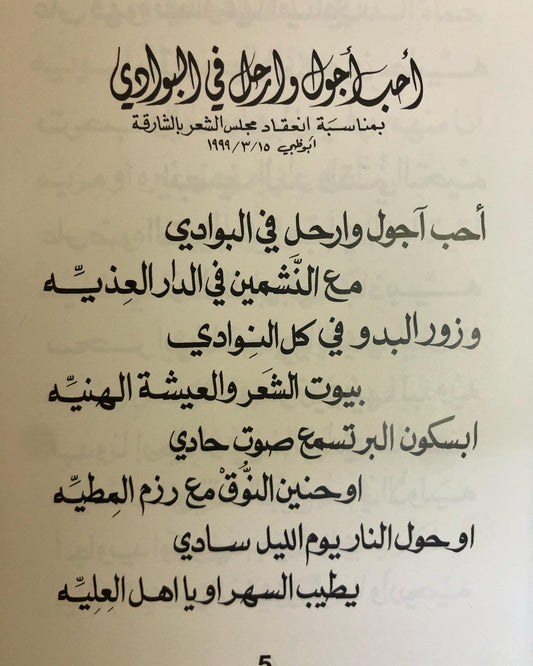 أحب أجول وارحل في البوادي
بمناسبة انعقاد مجلس الشعر بالشارقة
أبوظبي ١٩٩٩/٣/١٥
أحب آجول وارحل في البوادي
مع النَّشمين في الدار العِذيِّـه
وزور البدو في كل النِوادي
بيوت الشعَر والعيشة الهنيِّه
ابسكون البر تسمع صوت حادي
او حنين النُّوقْ مع رزم المِطيِّه
او حول النار يوم الليل سادي
يطيب السهر او يا اهل العِليِّه
5